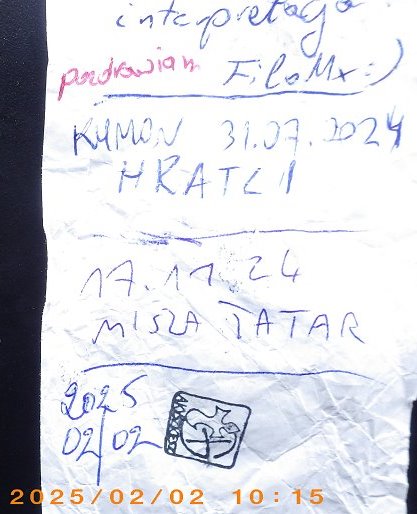 interpretacja
pozdrawiam FiloMx:)
KYMON 31.07.2024
17.11.24
MISZA TATAR
2025
02/02
2025/02/02 10:15